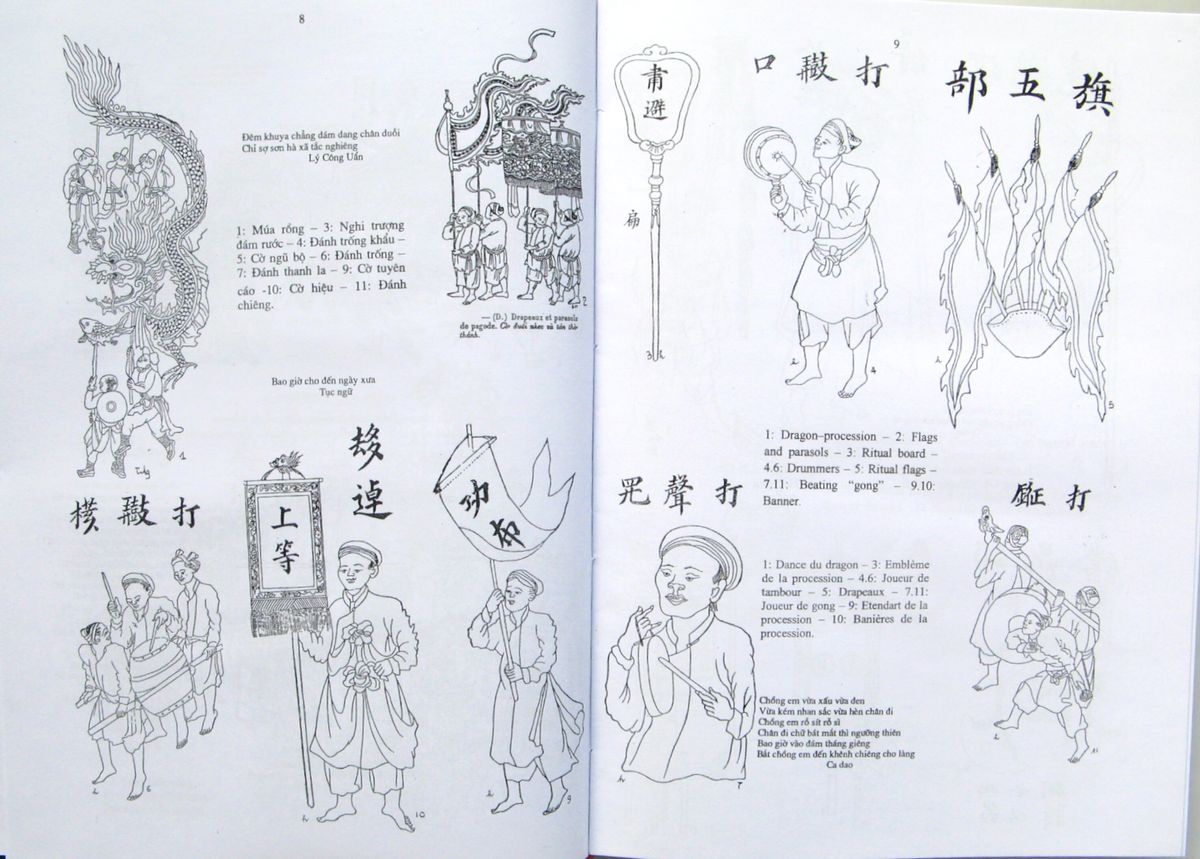 8
Đêm khuya chẳng dám dang chân duỗi
Chỉ sợ sơn hà xã tắc nghiêng
Lý Công Uẩn
1: Múa rồng – 3: Nghi trượng
đám rước – 4: Đánh trống khẩu –
5: Cờ ngũ bộ – 6: Đánh trống –
7: Đánh thanh la – 9: Cờ tuyên
cáo -10: Cờ hiệu – 11: Đánh
chiêng.
2
— (D.) Drapeaux et parasols
de pagode. Cờ đuôi nheo và tán thờ
thánh.
1
Bao giờ cho đến ngày xưa
Tục ngữ
打橫
6
上等
10
功布
9
9
避
扁
3
打口
4
旗五部
5
1: Dragon–procession – 2: Flags
and parasols – 3: Ritual board –
4.6: Drummers – 5: Ritual flags –
7.11: Beating “gong” – 9.10:
Banner.
打聲
7
打鉦
11
1: Dance du dragon – 3: Emblème
de la procession – 4.6: Joueur de
tambour – 5: Drapeaux – 7.11:
Joueur de gong – 9: Etendart de la
procession – 10: Banières de la
procession.
Chồng em vừa xấu vừa đen
Vừa kém nhan sắc vừa hèn chân đi
Chồng em rỗ sít rỗ sì
Chân đi chữ bát mắt thì ngưỡng thiên
Bao giờ vào đám tháng giêng
Bắt chồng em đến khênh chiêng cho làng
Ca dao